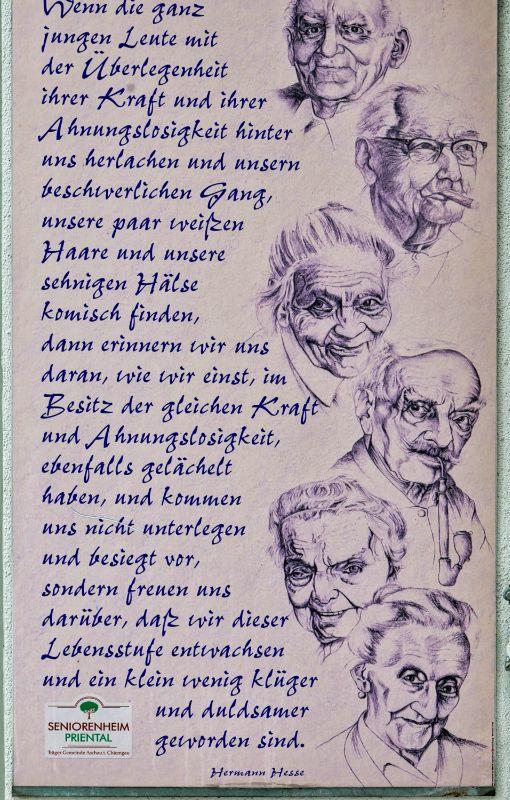 Wenn die ganz
jungen Leute mit
der Überlegenheit
ihrer Kraft und ihrer
Ahnungslosigkeit hinter
uns herlachen und unsern
beschwerlichen Gang,
unsere paar weißen
Haare und unsere
sehnigen Hälse
komisch finden,
dann erinnern wir uns
daran, wie wir einst, im
Besitz der gleichen Kraft
und Ahnungslosigkeit,
ebenfalls gelächelt
haben, und kommen
uns nicht unterlegen
und besiegt vor,
sondern freuen uns
darüber, daß wir dieser
Lebensstufe entwachsen
und ein klein wenig klüger
und duldsamer
geworden sind.
Hermann Hesse
SENIORENHEIM
PRIENTAL
Träger Gemeinde Aschau i. Chiemgau